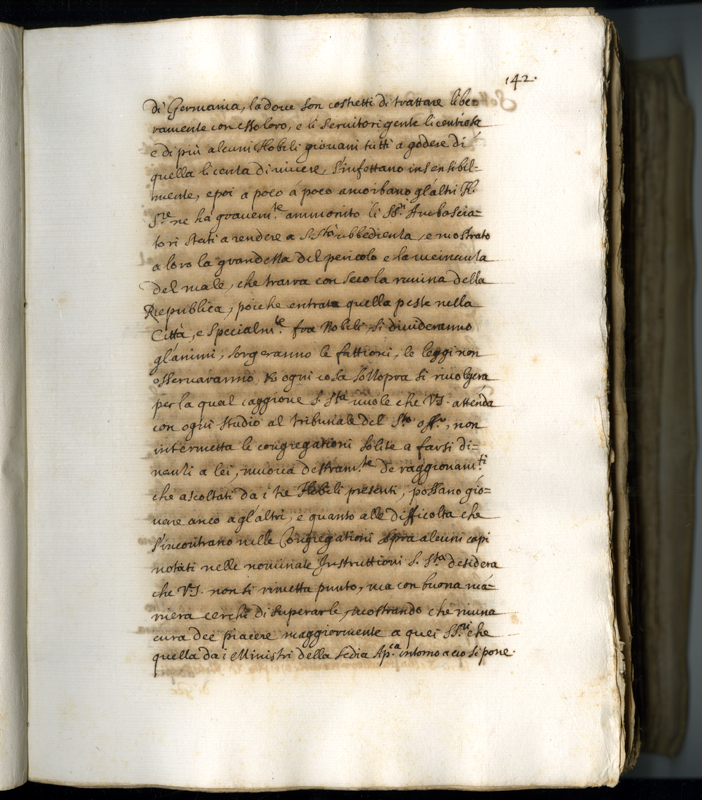 142.
di Germania, ladove son costretti di trattare libe=
ramente con esso loro, e li servitori gente licentiosa
e di più alcuni Nobili giovani tutti a godere di
quella licenza di vivere, s'infettano insensibil=
mente, e poi a poco à poco amorbano gl'altri N.
S.re ne ha gravem.te ammonito li SS.ri Ambascia=
tori stati a rendere a S. S.tà ubbedienza, e mostrato
a loro la grandezza del pericolo e la vicinanza
del male, che trarra con seco la ruvina della
Republica, poiche entrata quella peste nella
Città, e specialm.te fra Nobili si divideranno
gl'animi, sorgeranno le fattioni, le leggi non
osservaranno, et ogni cosa sottosopra si rivolgera
per la qual caggione S. S.tà vuole che V.S. attenda
con ogni studio al tribunale del S.to off.o, non
intermetta le congregationi solite a farsi di=
nanzi a lei, muova destram.te de raggionam.ti
che ascoltati da i tre Nobili presenti, possano gio=
vare anco agl'altri, e quanto alle difficolta che
s'incontrano nelle Congregationi sopra alcuni capi
notati nelle nominate Instruttioni S. S.tà desidera
che V.S. non si rimetta punto, ma con buona ma=
niera cerchi di superarle, mostrando che niuna
cura dee piacere maggiormente a quei SS.ri che
quella da i Ministri della Sedia Ap.ca intorno a cio si pone.